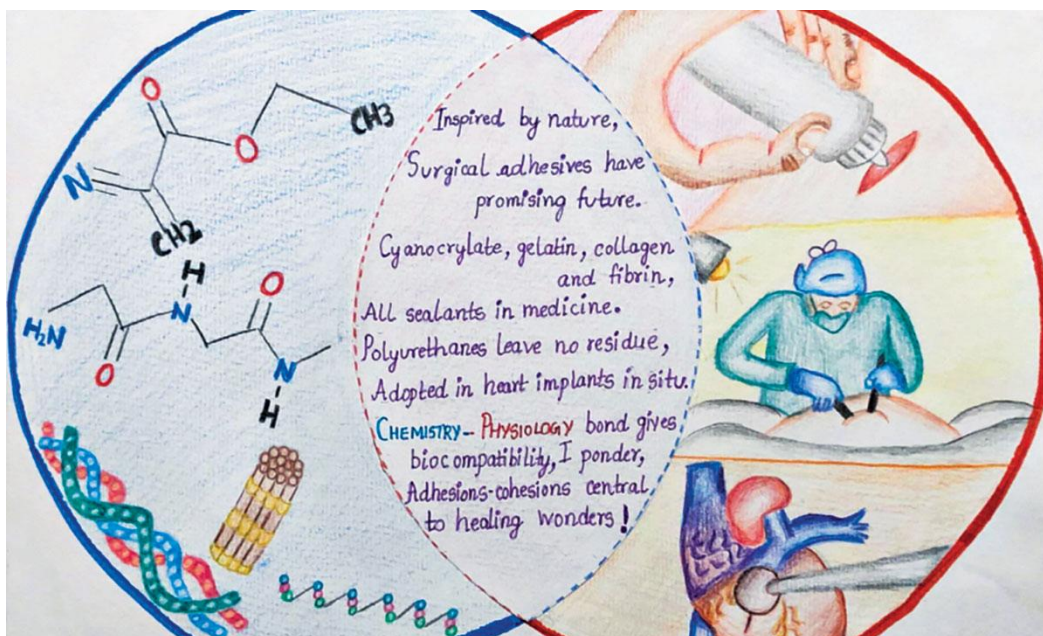 O
CH3
O
N
CH2
H
O
N
H₂N
O
N
H
Inspired by nature,
Surgical adhesives have
promising future.
Cyanocrylate, gelatin, collagen
and fibrin,
All sealants in medicine.
Polyurethanes leave no residue,
Adopted in heart implants in situ.
CHEMISTRY - PHYSIOLOGY bond gives
biocompatibility, I ponder,
Adhesions-cohesions central
to healing wonders!